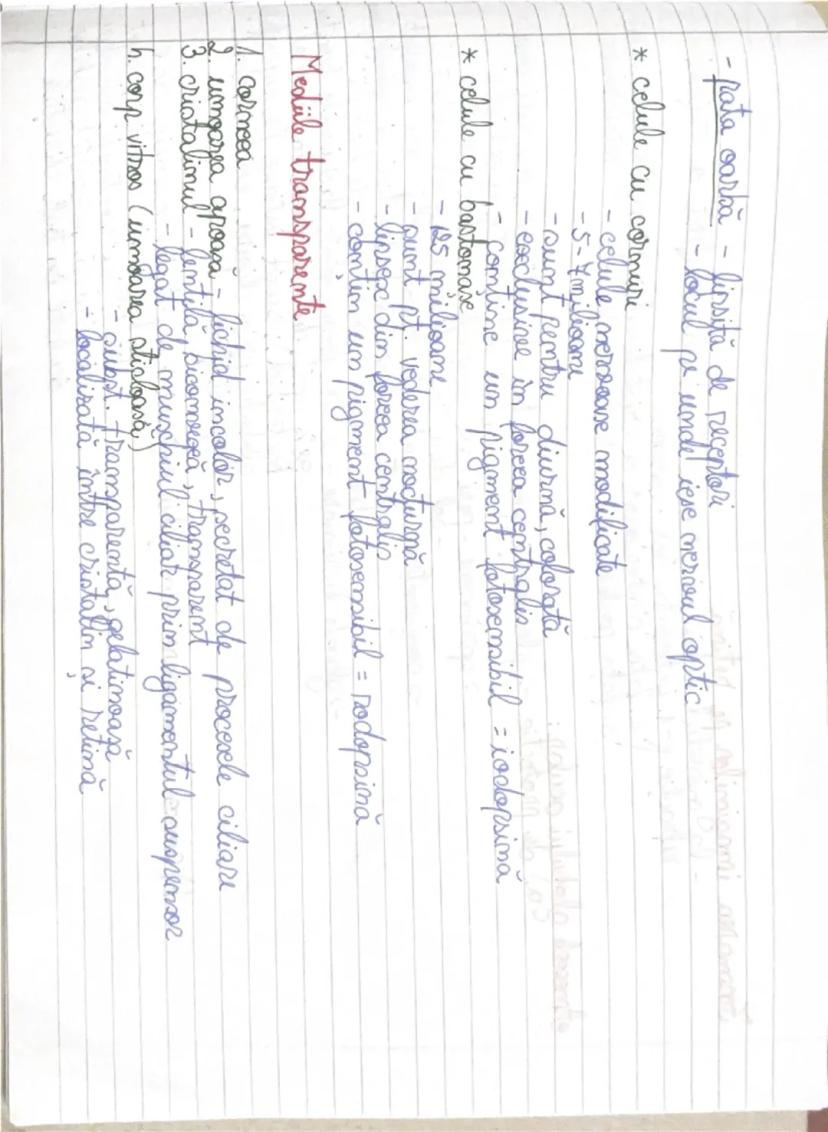 - pata oarbă - lipsită de receptori
- locul pe unde iese nervul optic
* celule cu conuri
- celule nervoase modificate
- 5-7 milioane
- sunt pentru diurnă, colorată
- exclusive în foveea centralis
- conține un pigment fotosensibil = iodopsină
* celule cu bastonașe
- 125 milioane
- sunt pt. vederea nocturnă
- lipsesc din foveea centralis
- conțin un pigment fotosensibil = rodopsină
Mediile transparente
1. corneea
2. umoarea apoasă - lichid incolor, secretat de procesele ciliare
3. cristalinul - lentilă biconvexă, transparent
- legat de mușchiul ciliar prin ligamentul suspensor
4. corp vitros (umoarea sticloasă)
- subst. transparentă, gelatinoasă
- localizată între cristalin și retină